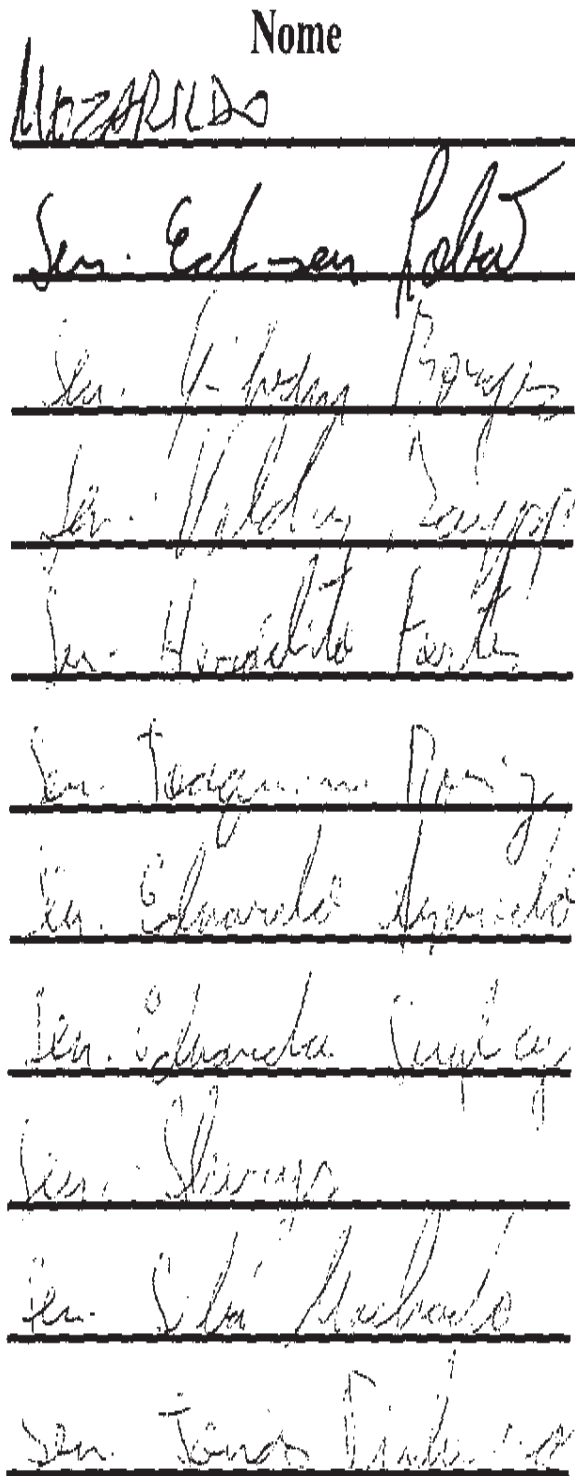 Nome
MOZARILDO
Sen. Edison Lobão
Sen. Gilvam Borges
Sen. Valdir Raupp
Sen. Heráclito Fortes
Sen. Joaquim Roriz
Sen. Eduardo Azeredo
Sen. Eduardo Suplicy
Sen.
Sen. Sibá Machado
Sen. Jonas Pinheiro